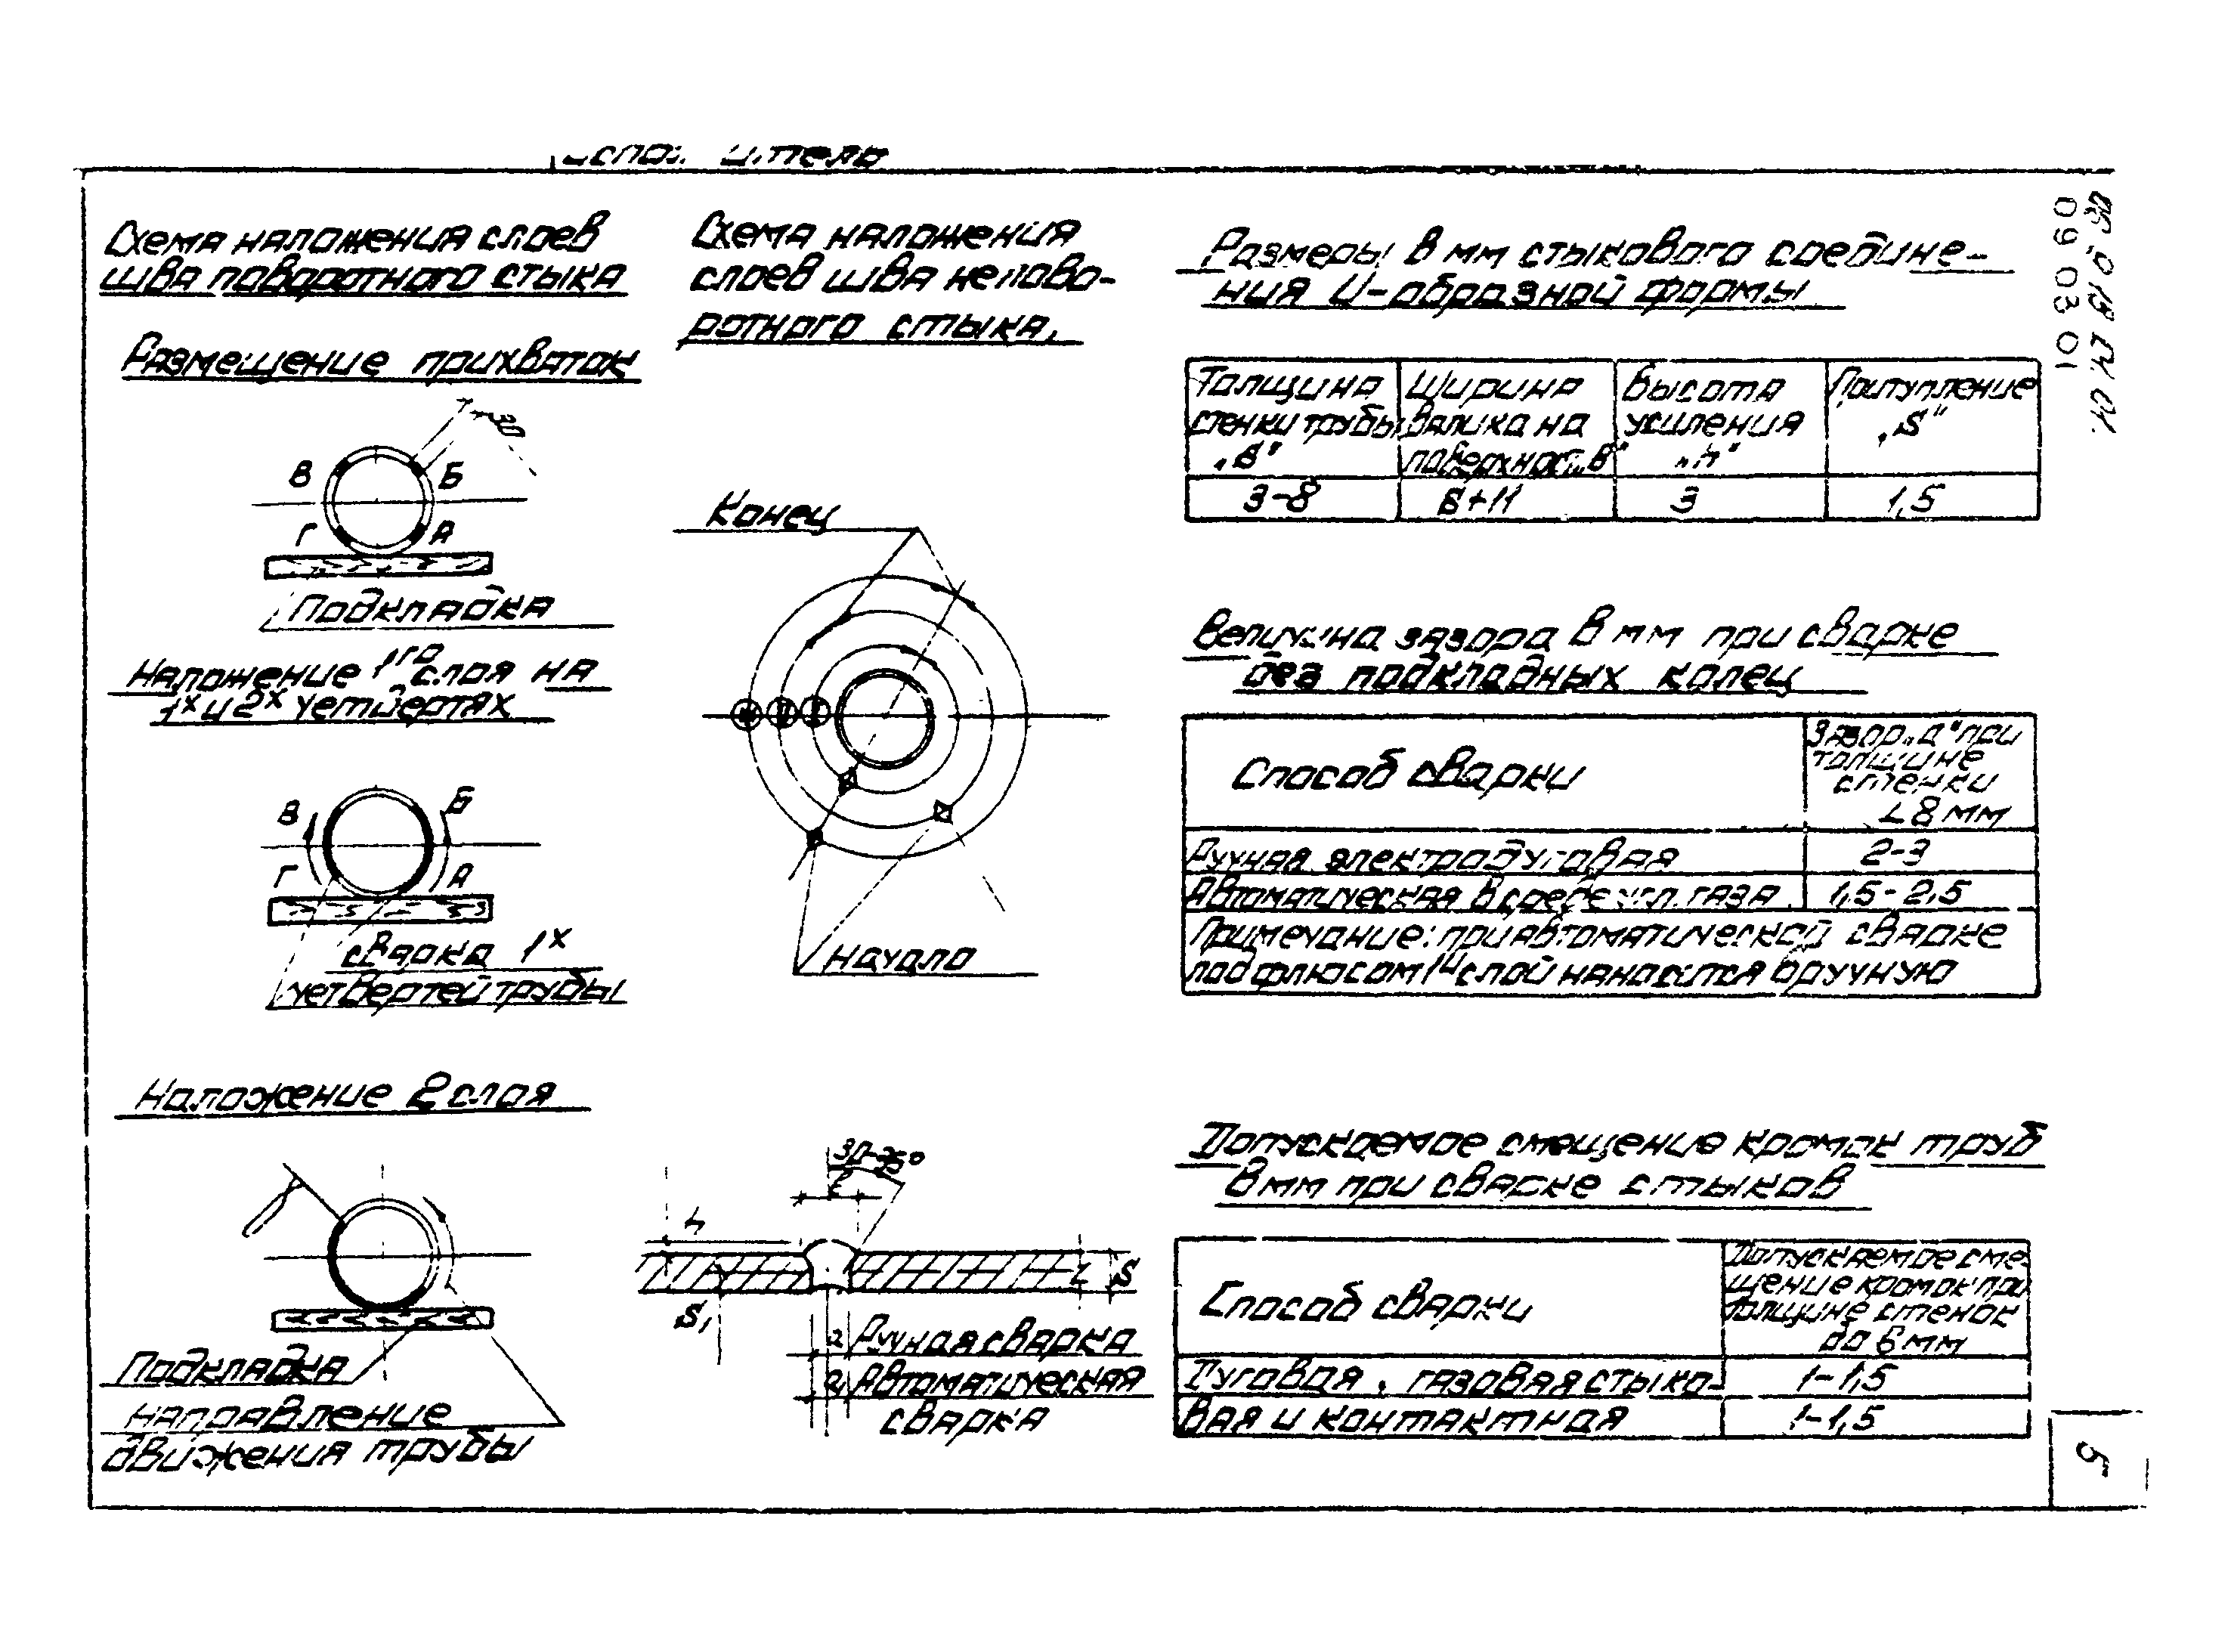 Схема наложения слоев
шва поворотного стыка
Размещение прихваток
В
Б
Г
А
Подкладка
Наложение 1го слоя на
1х и 2х четвертях
В
Б
Г
А
сварка 1х
четвертей трубы
Наложение 2 слоя
Подкладка
Направление
движения трубы
Схема наложения
слоев шва непово-
ротного стыка.
Конец
Начало
30-35°
h
S
S1
2 Ручная сварка
2 Автоматическая
сварка
Размеры в мм стыкового соедине-
ния U-образной формы
Толщина
стенки трубы
Ширина
валика на
поверхност. „В"
Высота
усиления
„h"
Притупление
„S"
3-8
3
1,5
Величина зазора в мм при сварке
без подкладных колец
Способ сварки
Зазор „а" при
толщине
стенки
<8 мм
Ручная электродуговая
2-3
Автоматическая в среде угл. газа
1,5-2,5
Примечание: при автоматической сварке
под флюсом 1й слой наносится вручную
Допускаемое смещение кромок труб
в мм при сварке стыков
Способ сварки
Допускаемое сме-
щение кромок при
толщине стенок
до 6 мм
Дуговая, газовая стыко-
1-1,5
вая и контактная
1-1,5
09 03 01
5